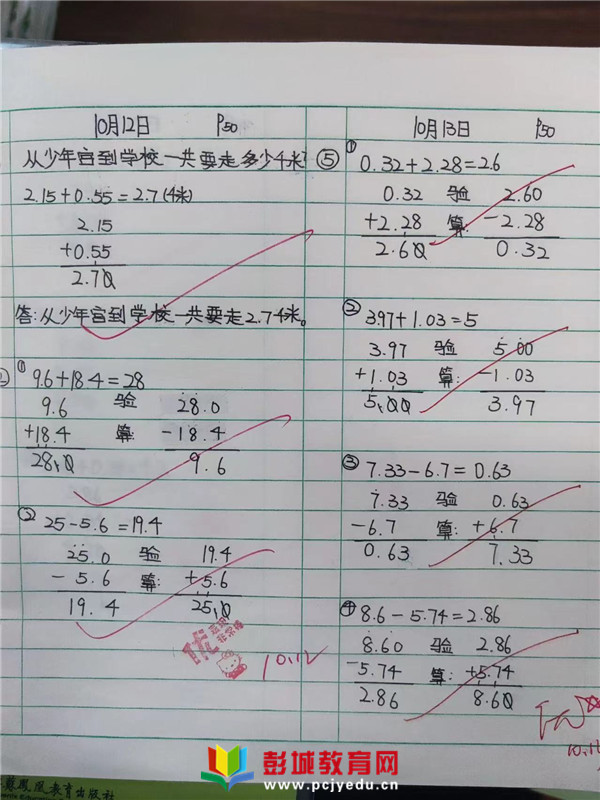 10月12日 P50
从少年宫到学校一共要走多少千米?
2.15+0.55=2.7(千米)
2.15
+0.55
2.70
答:从少年宫到学校一共要走2.7千米。
① 9.6+18.4=28
9.6 验 28.0
+18.4 算: -18.4
28.0 9.6
② 25-5.6=19.4
25.0 验 19.4
-5.6 算: +5.6
19.4 25.0
10.12
10月13日 P50
⑤ ① 0.32+2.28=2.6
0.32 验 2.60
+2.28 算: -2.28
2.60 0.32
② 3.97+1.03=5
3.97 验 5.00
+1.03 算: -1.03
5.00 3.97
③ 7.33-6.7=0.63
7.33 验 0.63
-6.7 算: +6.7
0.63 7.33
④ 8.6-5.74=2.86
8.60 验 2.86
-5.74 算: +5.74
2.86 8.60
彭城教育网
www.pcjyedu.cn
苏凤凰教育出版社